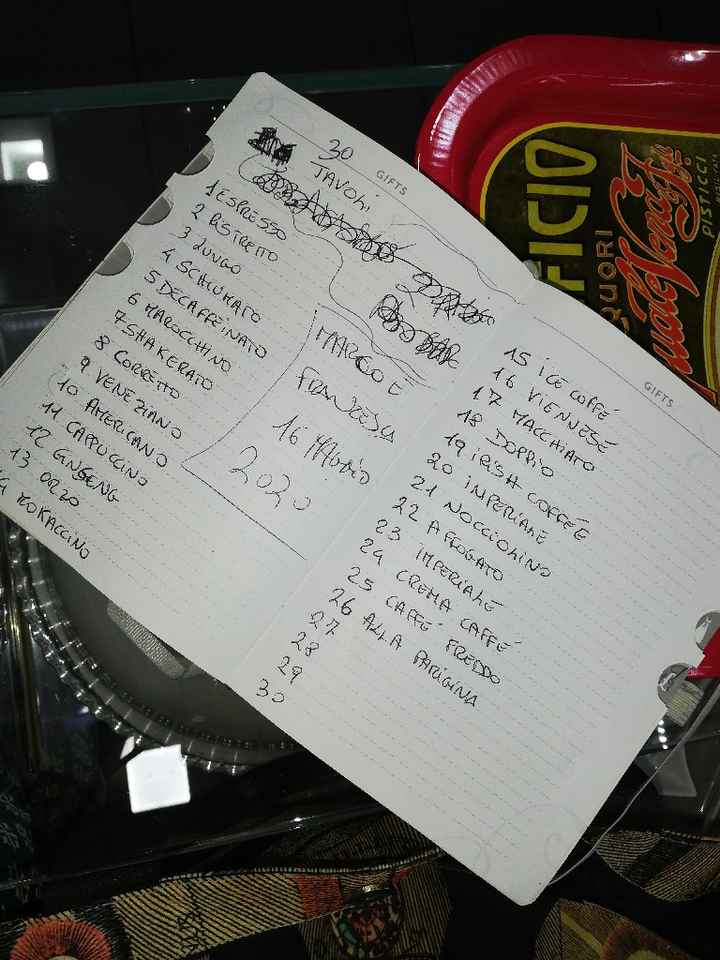 30
TAVOLI
GIFTS
1 ESPRESSO
2 RISTRETTO
3 LUNGO
4 SCHIUMATO
5 DECAFFEINATO
6 MAROCCHINO
7 SHAKERATO
8 CORRETTO
9 VENEZIANO
10 AMERICANO
11 CAPPUCCINO
12 GINSENG
13 ORZO
14 MOKACCINO
MARCO E
FRANCESCA
16 MAGGIO
2020
GIFTS
15 ICE COFFE'
16 VIENNESE
17 MACCHIATO
18 DOPPIO
19 IRISH COFFEE
20 IMPERIALE
21 NOCCIOLINO
22 AFFOGATO
23 IMPERIALE
24 CREMA CAFFE'
25 CAFFE' FREDDO
26 ALLA PARIGINA
27
28
29
30
FICIO
QUORI
PISTICCI